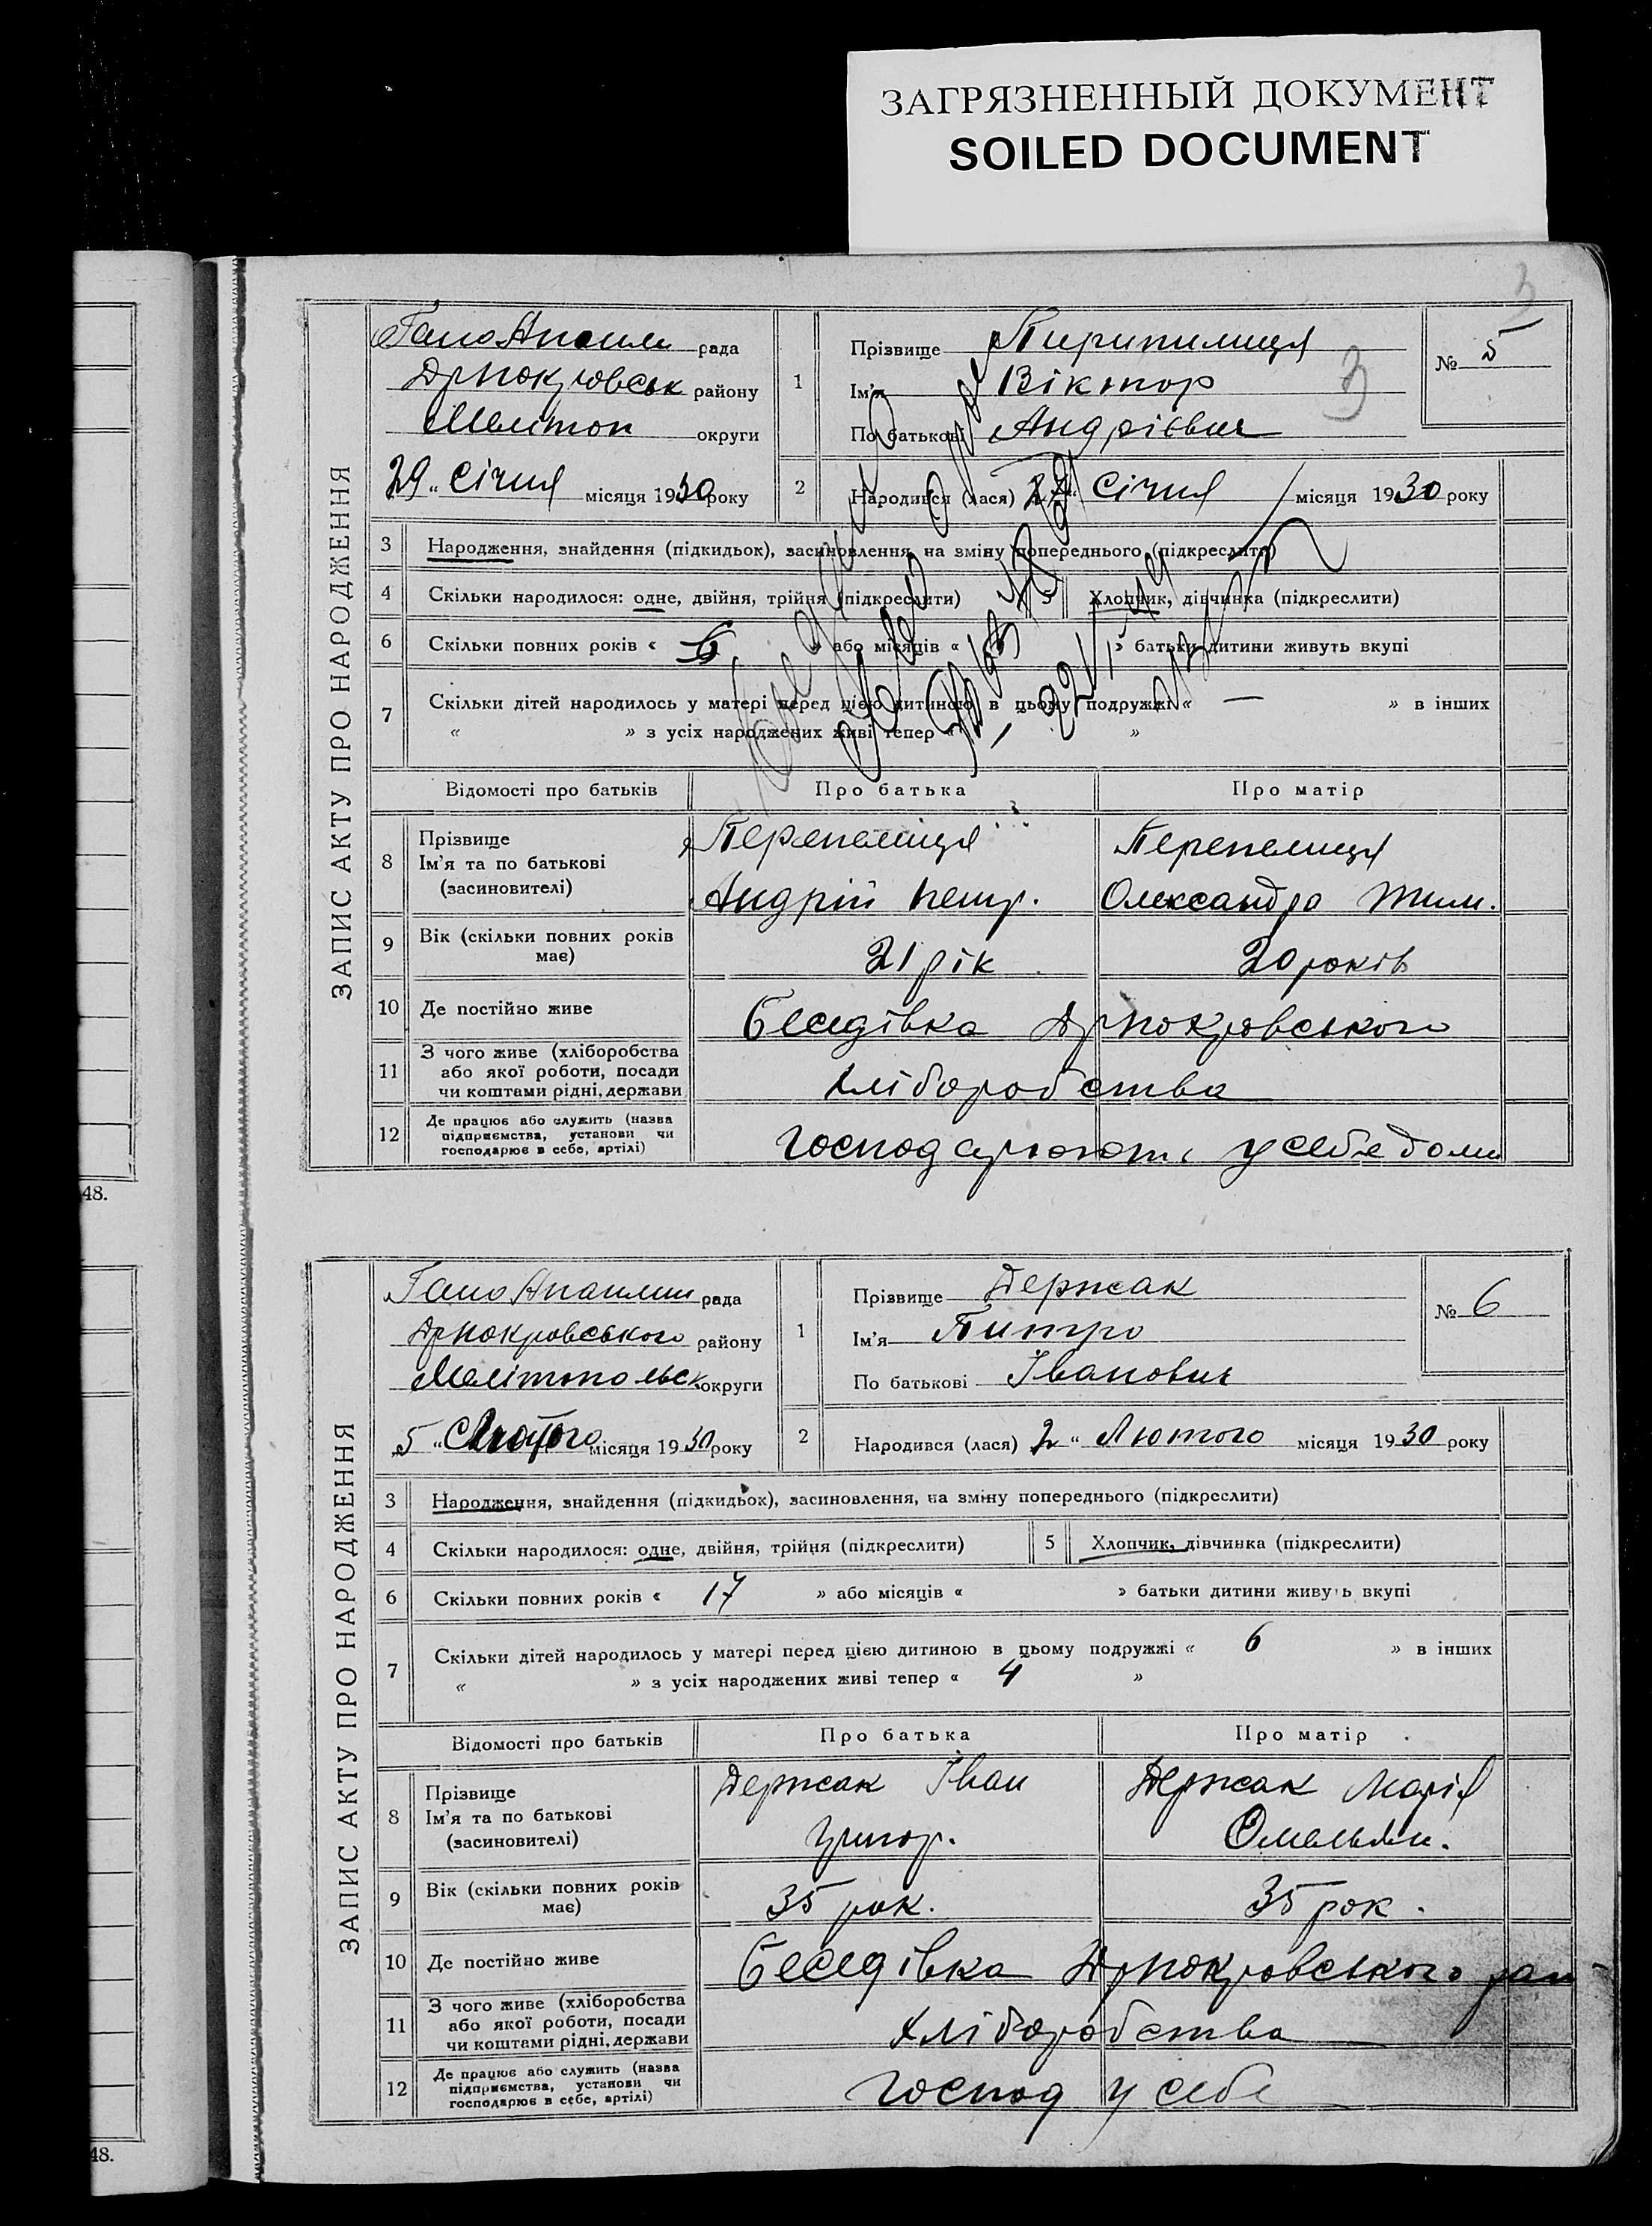 ЗАГРЯЗНЕННЫЙ ДОКУМЕНТ
SOILED DOCUMENT
3
ЗАПИС АКТУ ПРО НАРОДЖЕННЯ
рада
району
Мелітоп округи
29 „ Січня місяця 1930 року
1
Прізвище Пирипилиця
Ім'я Віктор
По батькові Андрієвич
№ 5
3
2
Народився (лася) 27 „ Січня місяця 1930 року
3 Народження, знайдення (підкидьок), засиновлення, на зміну попереднього (підкреслити)
4 Скільки народилося: одне, двійня, трійня (підкреслити) 5 Хлопчик, дівчинка (підкреслити)
6 Скільки повних років « » або місяців « » батьки дитини живуть вкупі
7 Скільки дітей народилось у матері перед цією дитиною в цьому подружжі « — » в інших
« » з усіх народжених живі тепер « »
Відомості про батьків Про батька Про матір
8 Прізвище Ім'я та по батькові (засиновителі)
Перепелиця Перепелиця
Андрій Петр. Олександра Тим.
9 Вік (скільки повних років має) 21 рік 20 років
10 Де постійно живе Беседівка Дрпокровського
11 З чого живе (хліборобства або якої роботи, посади чи коштами рідні, держави Хліборобства
12 Де працює або служить (назва підприємства, установи чи господарює в себе, артілі) Господарюють у себе дома
48.
ЗАПИС АКТУ ПРО НАРОДЖЕННЯ
рада
Дрпокровського району
Мелітопольськ округи
5 „ Лютого місяця 1930 року
1
Прізвище Держак
Ім'я Питро
По батькові Іванович
№ 6
2
Народився (лася) 2 „ Лютого місяця 1930 року
3 Народження, знайдення (підкидьок), засиновлення, на зміну попереднього (підкреслити)
4 Скільки народилося: одне, двійня, трійня (підкреслити) 5 Хлопчик, дівчинка (підкреслити)
6 Скільки повних років « 17 » або місяців « » батьки дитини живуть вкупі
7 Скільки дітей народилось у матері перед цією дитиною в цьому подружжі « 6 » в інших
« » з усіх народжених живі тепер « 4 »
Відомості про батьків Про батька Про матір
8 Прізвище Ім'я та по батькові (засиновителі)
Держак Іван Держак Марія
Григор. Омельян.
9 Вік (скільки повних років має) 35 рок. 35 рок.
10 Де постійно живе Беседівка Дрпокровського рай
11 З чого живе (хліборобства або якої роботи, посади чи коштами рідні, держави Хліборобства
12 Де працює або служить (назва підприємства, установи чи господарює в себе, артілі) Господ у себе
48.